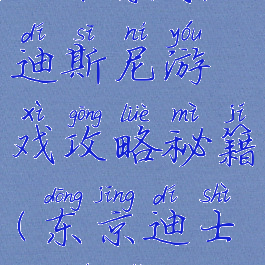 dí sī ní yóu
迪斯尼游
xì gōng lüè mì jí
戏攻略秘籍
dōng jīng dí shì
(东京迪士